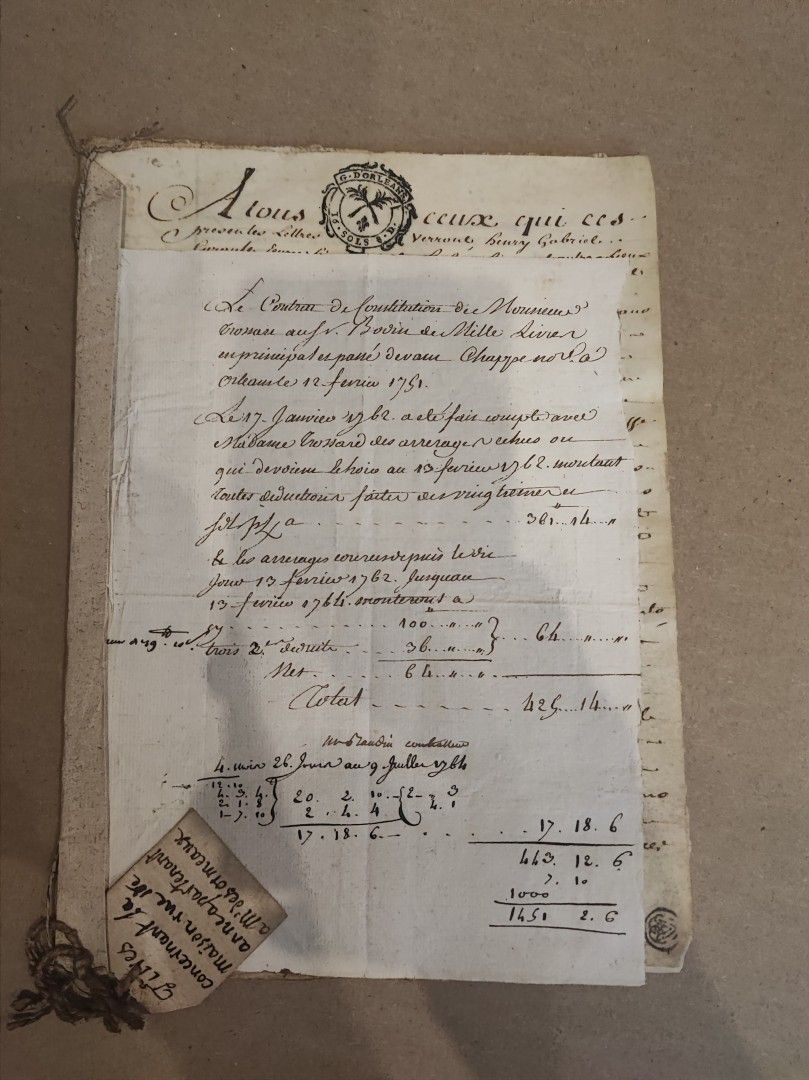 A tous
G. DORLEANS
16. SOLS 8. D.
ceux qui ces
presentes Lettres
Verront, henry Gabriel
Le Contrat de Constitution de Monsieur
Trossard au Sr. Bodin de Mille Livres
en principal est passé devant Chappe nore. a
Orleans le 12 fevrier 1751.
Le 17. Janvier 1762. a eté fait compte avec
Madame Trossard des arrerages echus ou
qui devoient lechoir au 13 fevrier 1762. montant
toutes deductions faites des vingtiemes et
a - - - - - - 361 .. 14 .. "
& les arrerages courus depuis le die
Jour 13 fevrier 1762. Jusquau
13 fevrier 1764. monteront a
cy - - - - - - 100 .. " .. "
64 .. " .. "
trois 2.es deduits - - - - 36 .. " .. "
Net - - - - - - 64 .. " .. "
Total - - - - - - 425 .. 14 .. "
4. mois 26. Jours au 9 Juillet 1764
12. 10
4. 3. 4
2. 1. 8
1. 7. 10
20. 2. 10
2. 4. 4
2. 3
4. 1
17. 18. 6
17. 18. 6
443. 12. 6
7. 10
1000
1451 2. 6
Titres
concernant la
maison rue de
a Mr desormeaux